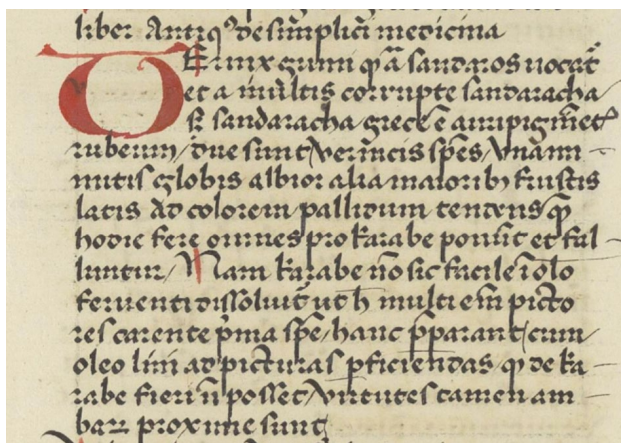 liber Antiqꝰ de simplici medicina
Vernix gumi qͣ a sandaros uocat᷑
et a multis corrupte sandaracha /
Sꝫ sandaracha / grece ē auripigmēt
rubeum / due sunt / vernicis spēs / vna mi
nutis globis albior alia maioribꝫ frustis
latis Ad colorem pallidum tendens / 
hodie fere omnes pro karabe ponūt et fal
luntur / Nam karabe nō sic facile ī olo
feruenti dissoluit᷑ ut h̄ multi em̄ picto
res carente p̄ma spē / hanc p̄parant / cum
oleo lini ad picturas ꝑficiendas / ꝙ de ka
rabe fieri nō posset / virtutes tamen am
barꝝ proxime sunt